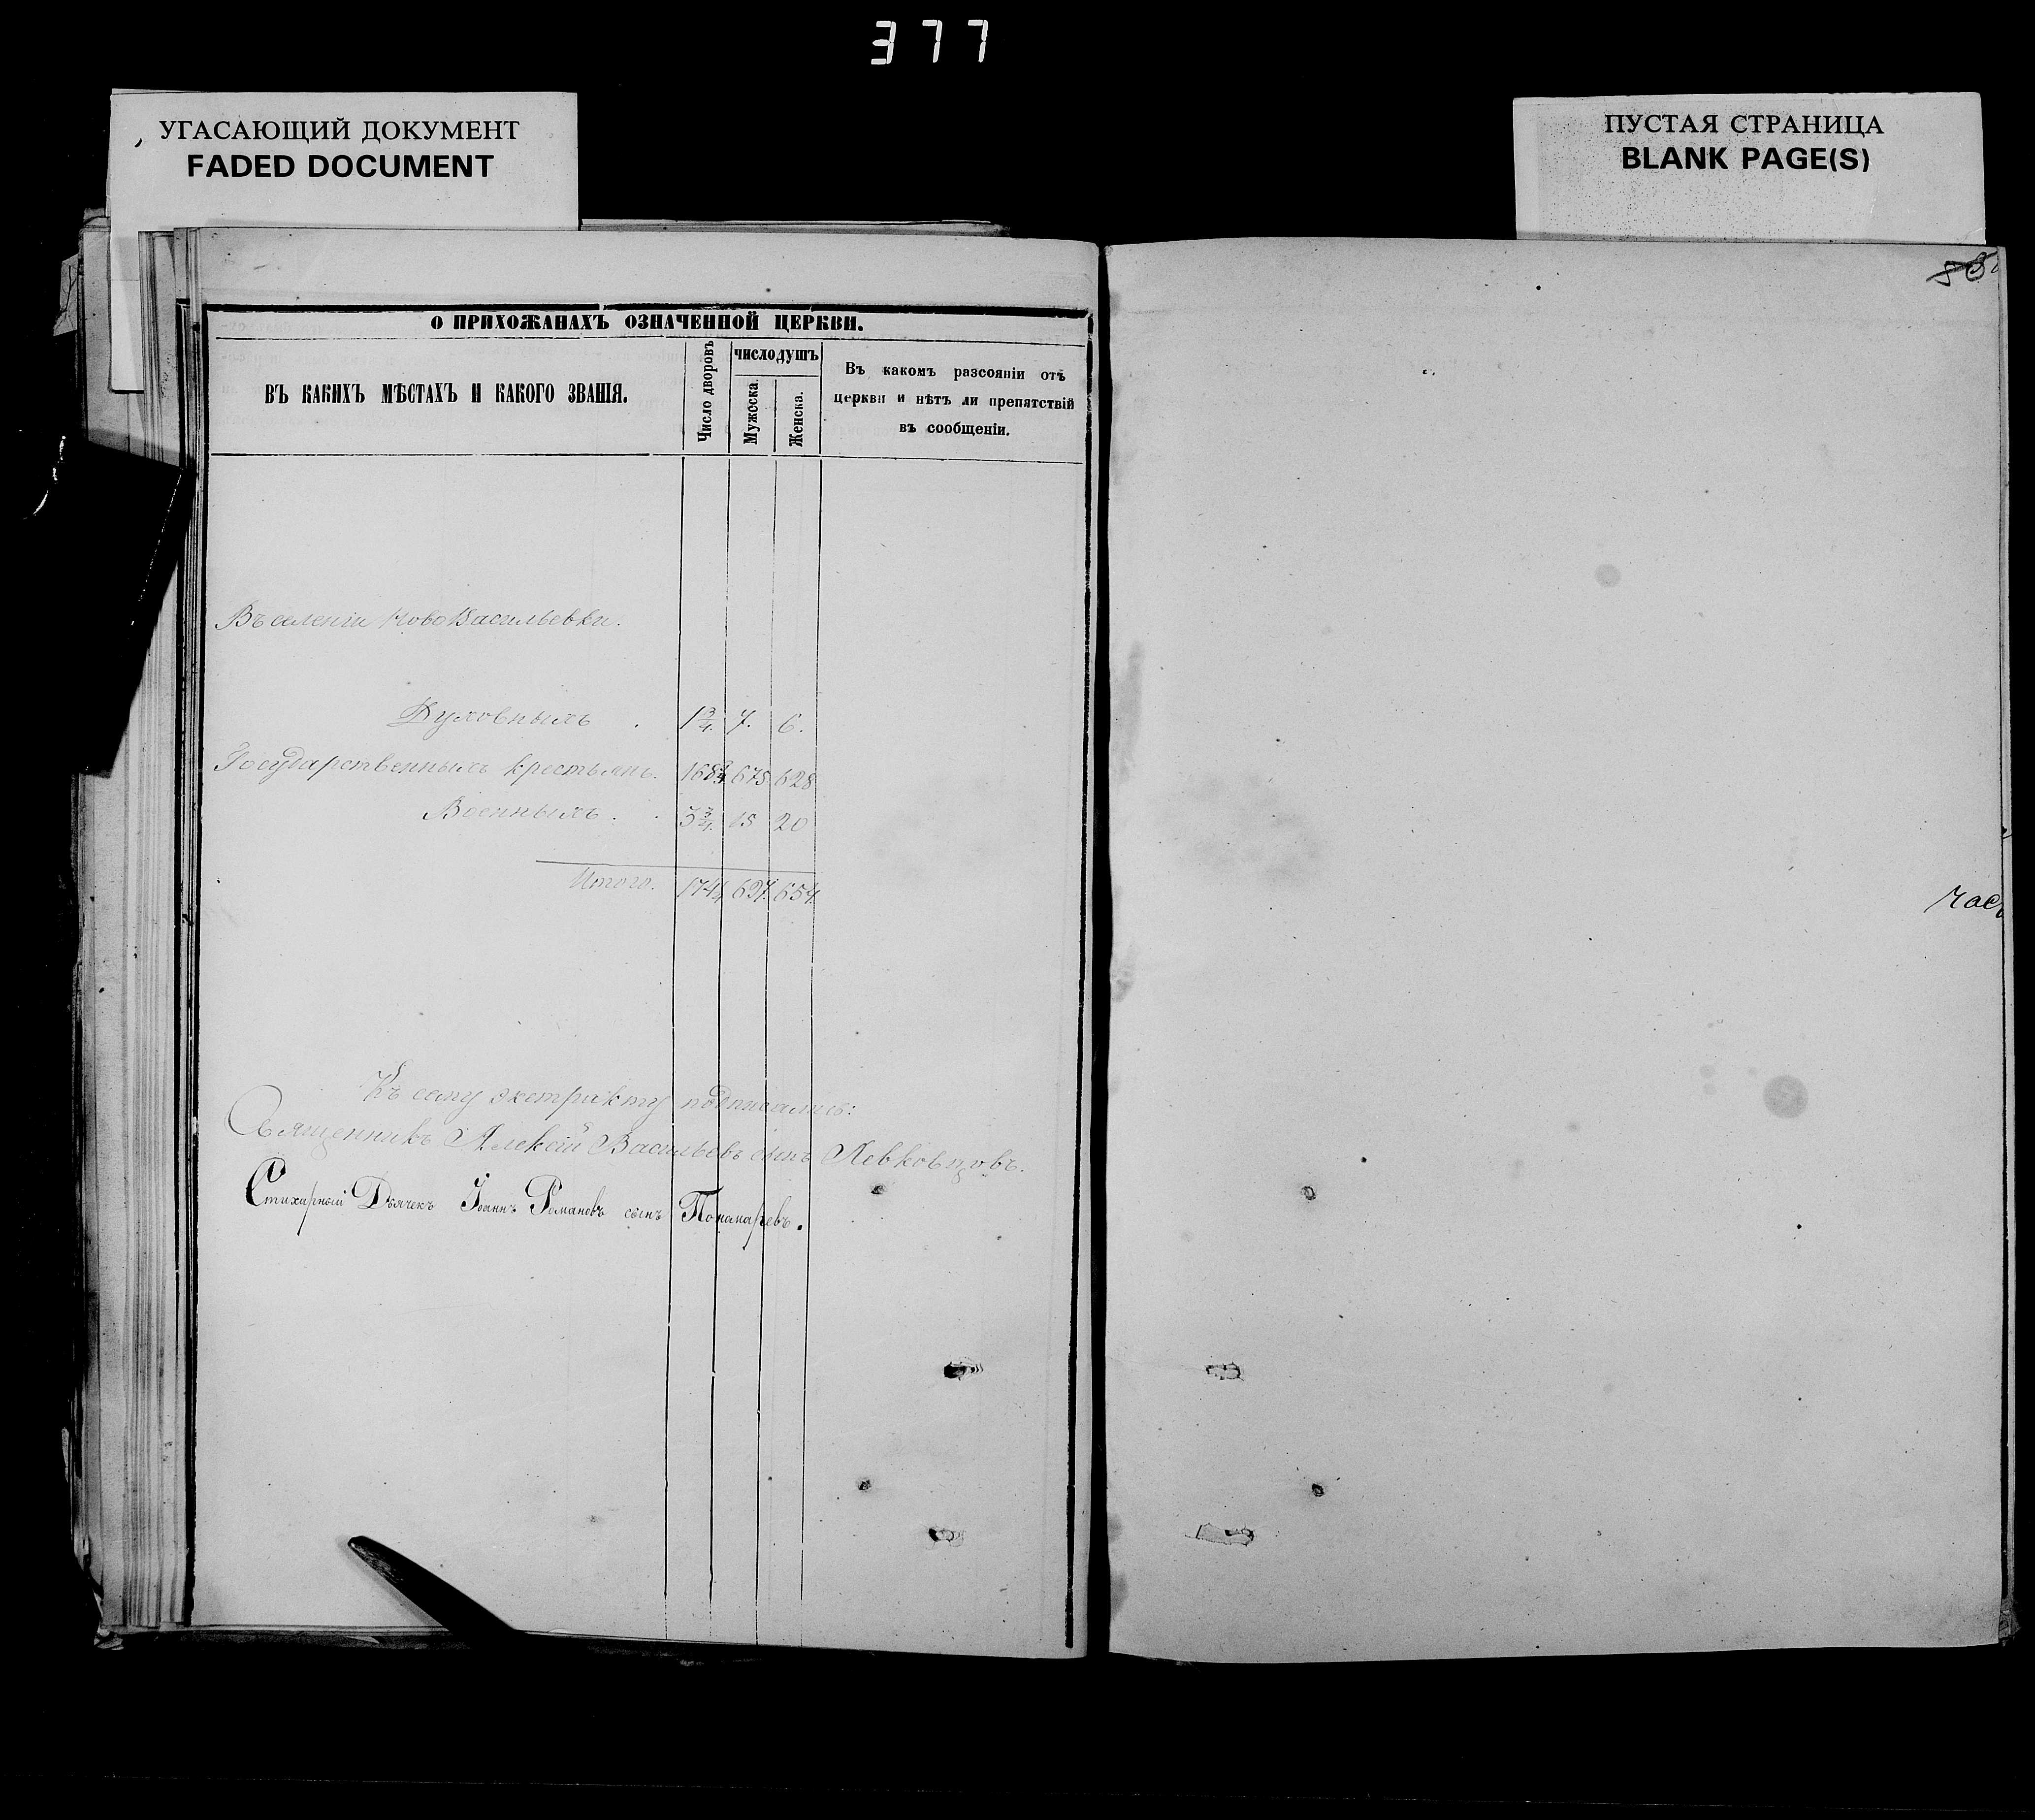 377
УГАСАЮЩИЙ ДОКУМЕНТ
FADED DOCUMENT
ПУСТАЯ СТРАНИЦА
BLANK PAGE(S)
О ПРИХОЖАНАХЪ ОЗНАЧЕННОЙ ЦЕРКВИ.
ВЪ КАКИХЪ МѢСТАХЪ И КАКОГО ЗВАНІЯ.
Число дворовъ
числодушъ
Мужсска.
Женска.
Въ какомъ разсояніи отъ
церкви и нѣтъ ли препятствій
въ сообщеніи.
Въ селеніи Ново Васильевки.
Духовныхъ . 1 3/4. 7. 6.
Государственныхъ крестьянъ. 675 628
Военныхъ . . 3 3/4. 15 20
Итого. 627. 654.
Къ сему экстракту подписались:
Священникъ Алексій Васильевъ сынъ Левковцовъ.
Стихарный Дьячекъ Іоаннъ Романовъ сынъ Понамаревъ.